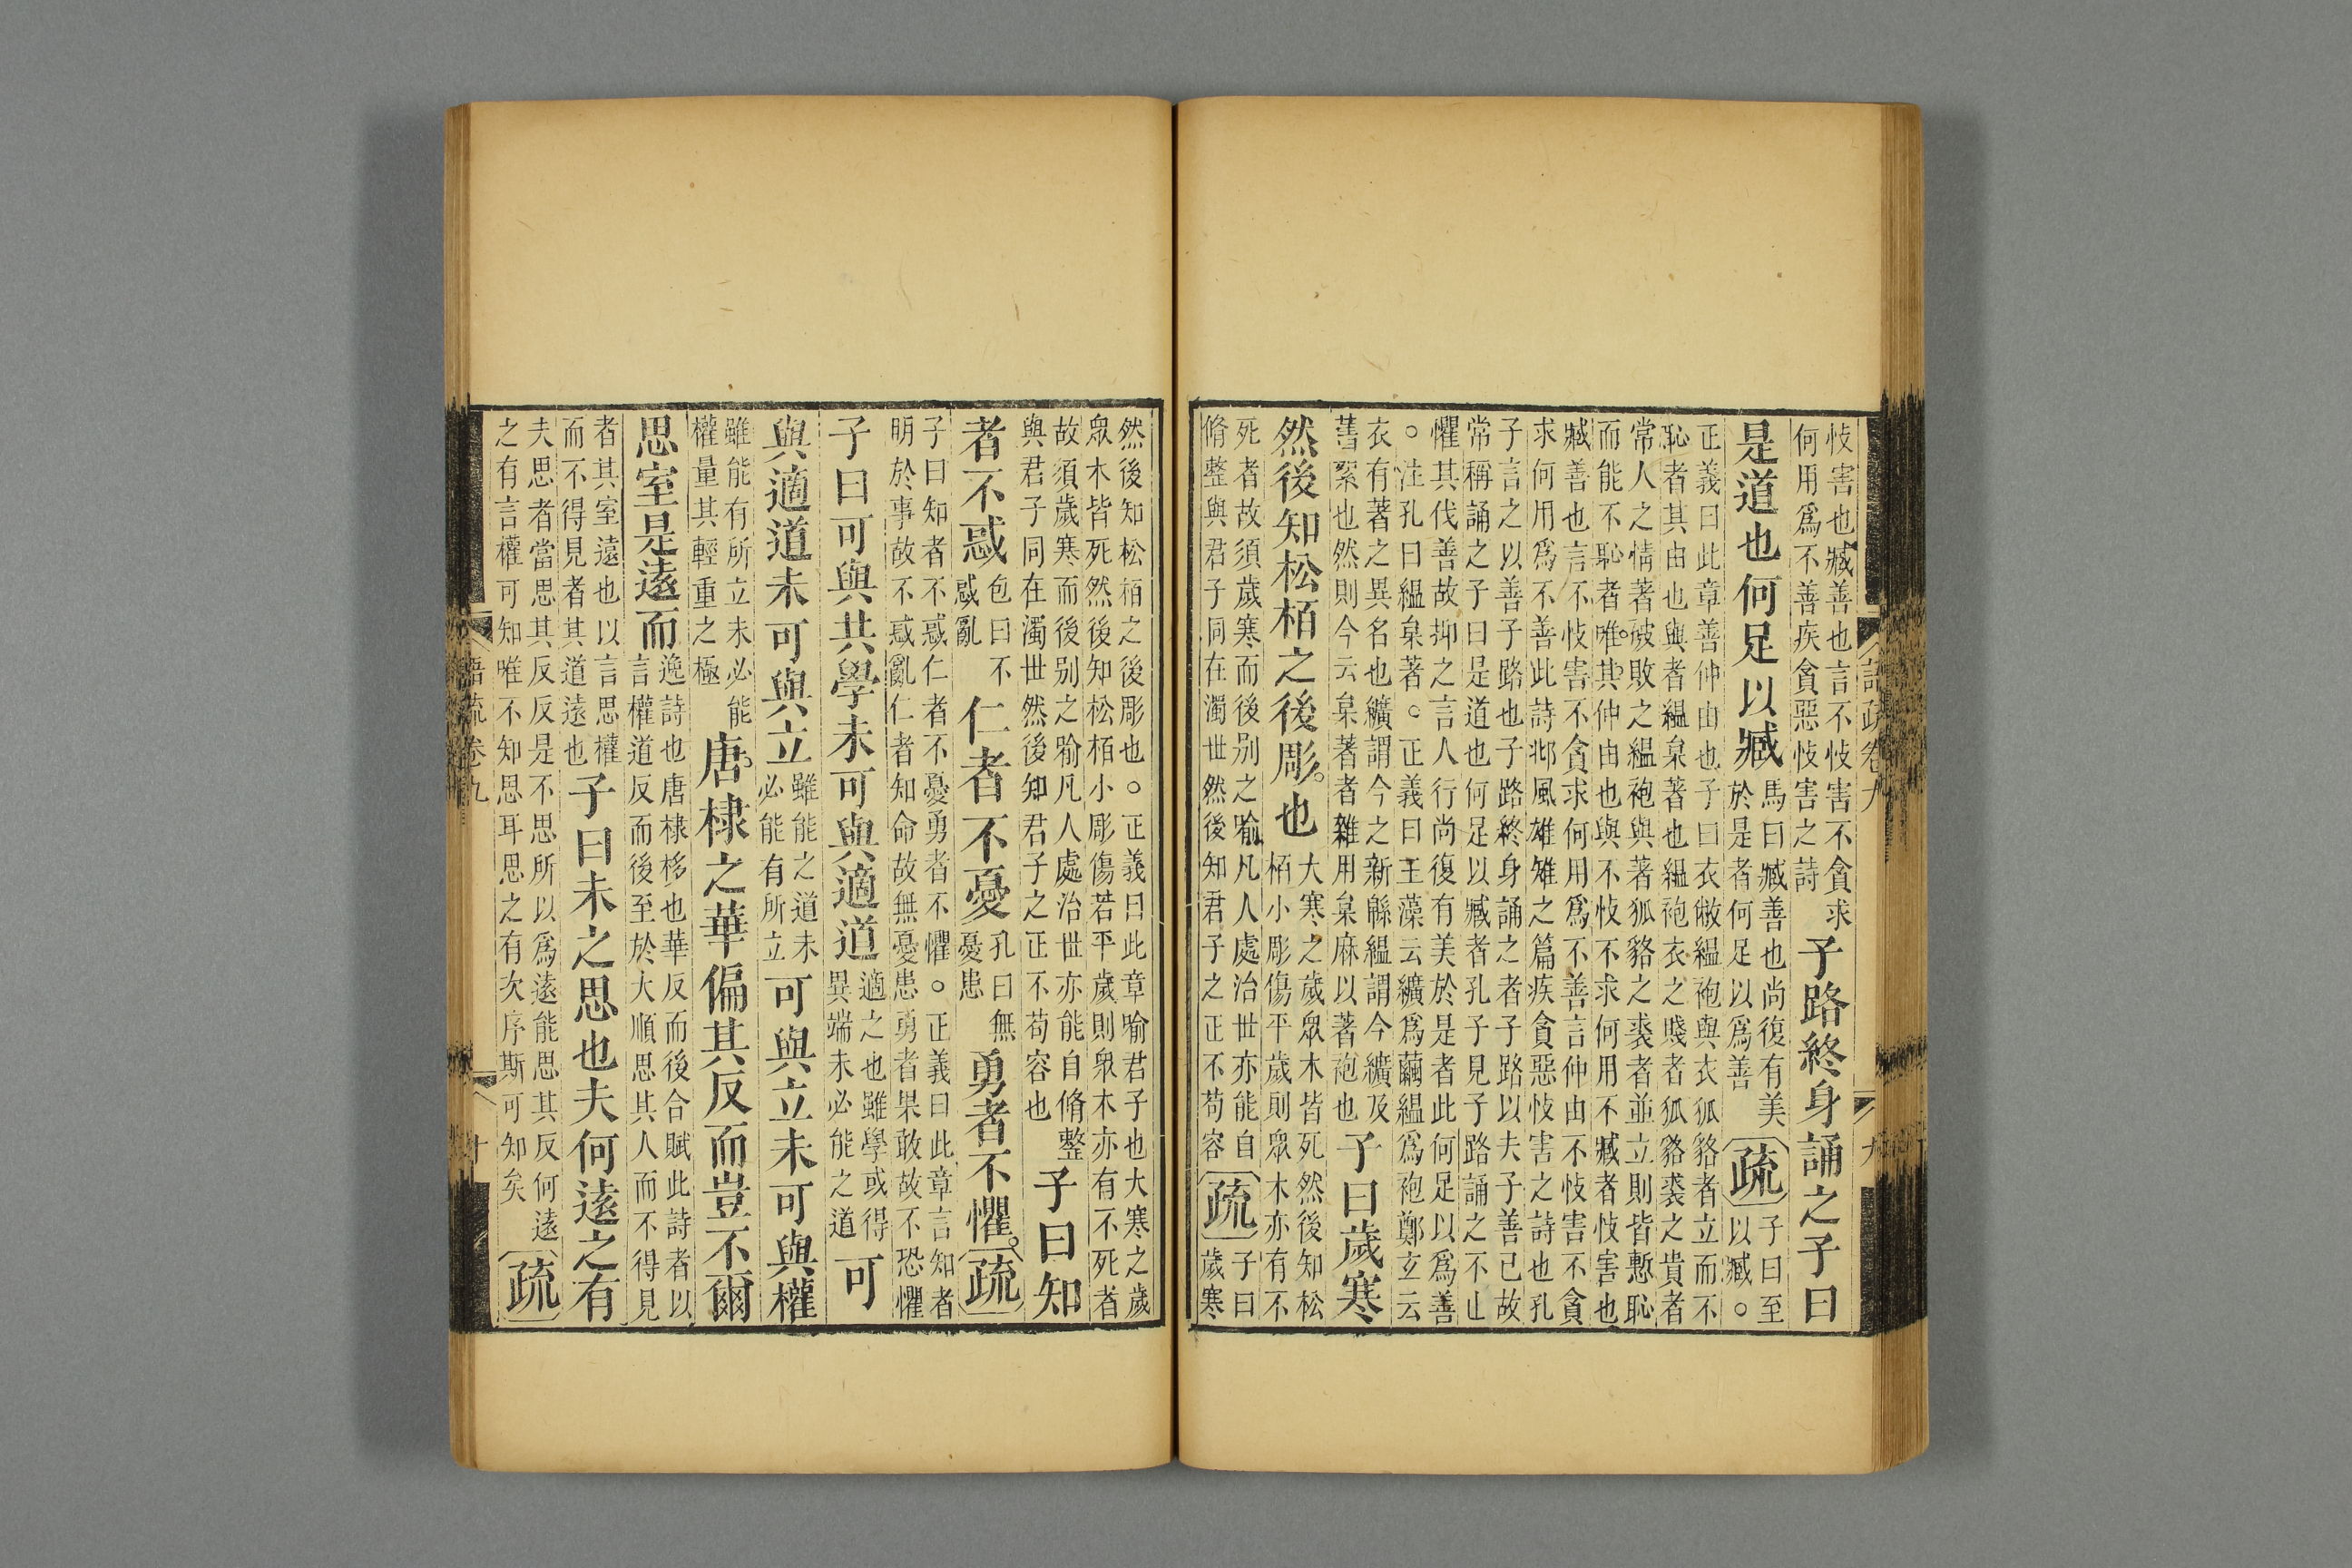 忮害也臧善也言不忮害不貪求
何用爲不善疾貪惡忮害之詩
子路終身誦之子曰
是道也何足以臧
馬曰臧善也尚復有美
於是者何足以爲善
疏
子曰至
以臧○
正義曰此章善仲由也子曰衣敝縕袍與衣狐貉者立而不
恥者其由也與者縕枲著也縕袍衣之賤者狐貉裘之貴者
常人之情著破敗之縕袍與著狐貉之裘者並立則皆慙恥
而能不恥者唯其仲由也與不忮不求何用不臧者忮害也
臧善也言不忮害不貪求何用爲不善言仲由不忮害不貪
求何用爲不善此詩邶風雄雉之篇疾貪惡忮害之詩也孔
子言之以善子路也子路終身誦之者子路以夫子善己故
常稱誦之子曰是道也何足以臧者孔子見子路誦之不止
懼其伐善故抑之言人行尚復有美於是者此何足以爲善
○注孔曰縕枲著○正義曰玉藻云纊爲繭縕爲袍鄭玄云
衣有著之異名也纊謂今之新緜縕謂今纊及
舊絮也然則今云枲著者雜用枲麻以著袍也
子曰歲寒
然後知松栢之後彫也
大寒之歲眾木皆死然後知松
栢小彫傷平歲則眾木亦有不
死者故須歲寒而後别之喻凡人處治世亦能自
脩整與君子同在濁世然後知君子之正不苟容
疏
子曰
歲寒
然後知松栢之後彫也○正義曰此章喻君子也大寒之歲
眾木皆死然後知松栢小彫傷若平歲則眾木亦有不死者
故須歲寒而後别之喻凡人處治世亦能自脩整
與君子同在濁世然後知君子之正不苟容也
子曰知
者不惑
包曰不
惑亂
仁者不憂
孔曰無
憂患
勇者不懼
疏
子曰知者不惑仁者不憂勇者不懼○正義曰此章言知者
明於事故不惑亂仁者知命故無憂患勇者果敢故不恐懼
子曰可與共學未可與適道
適之也雖學或得
異端未必能之道
可
與適道未可與立
雖能之道未
必能有所立
可與立未可與權
雖能有所立未必能
權量其輕重之極
唐棣之華偏其反而豈不爾
思室是遠而
逸詩也唐棣栘也華反而後合賦此詩者以
言權道反而後至於大順思其人而不得見
者其室遠也以言思權
而不得見者其道遠也
子曰未之思也夫何遠之有
夫思者當思其反反是不思所以爲遠能思其反何遠
之有言權可知唯不知思耳思之有次序斯可知矣
疏
語疏卷九
十